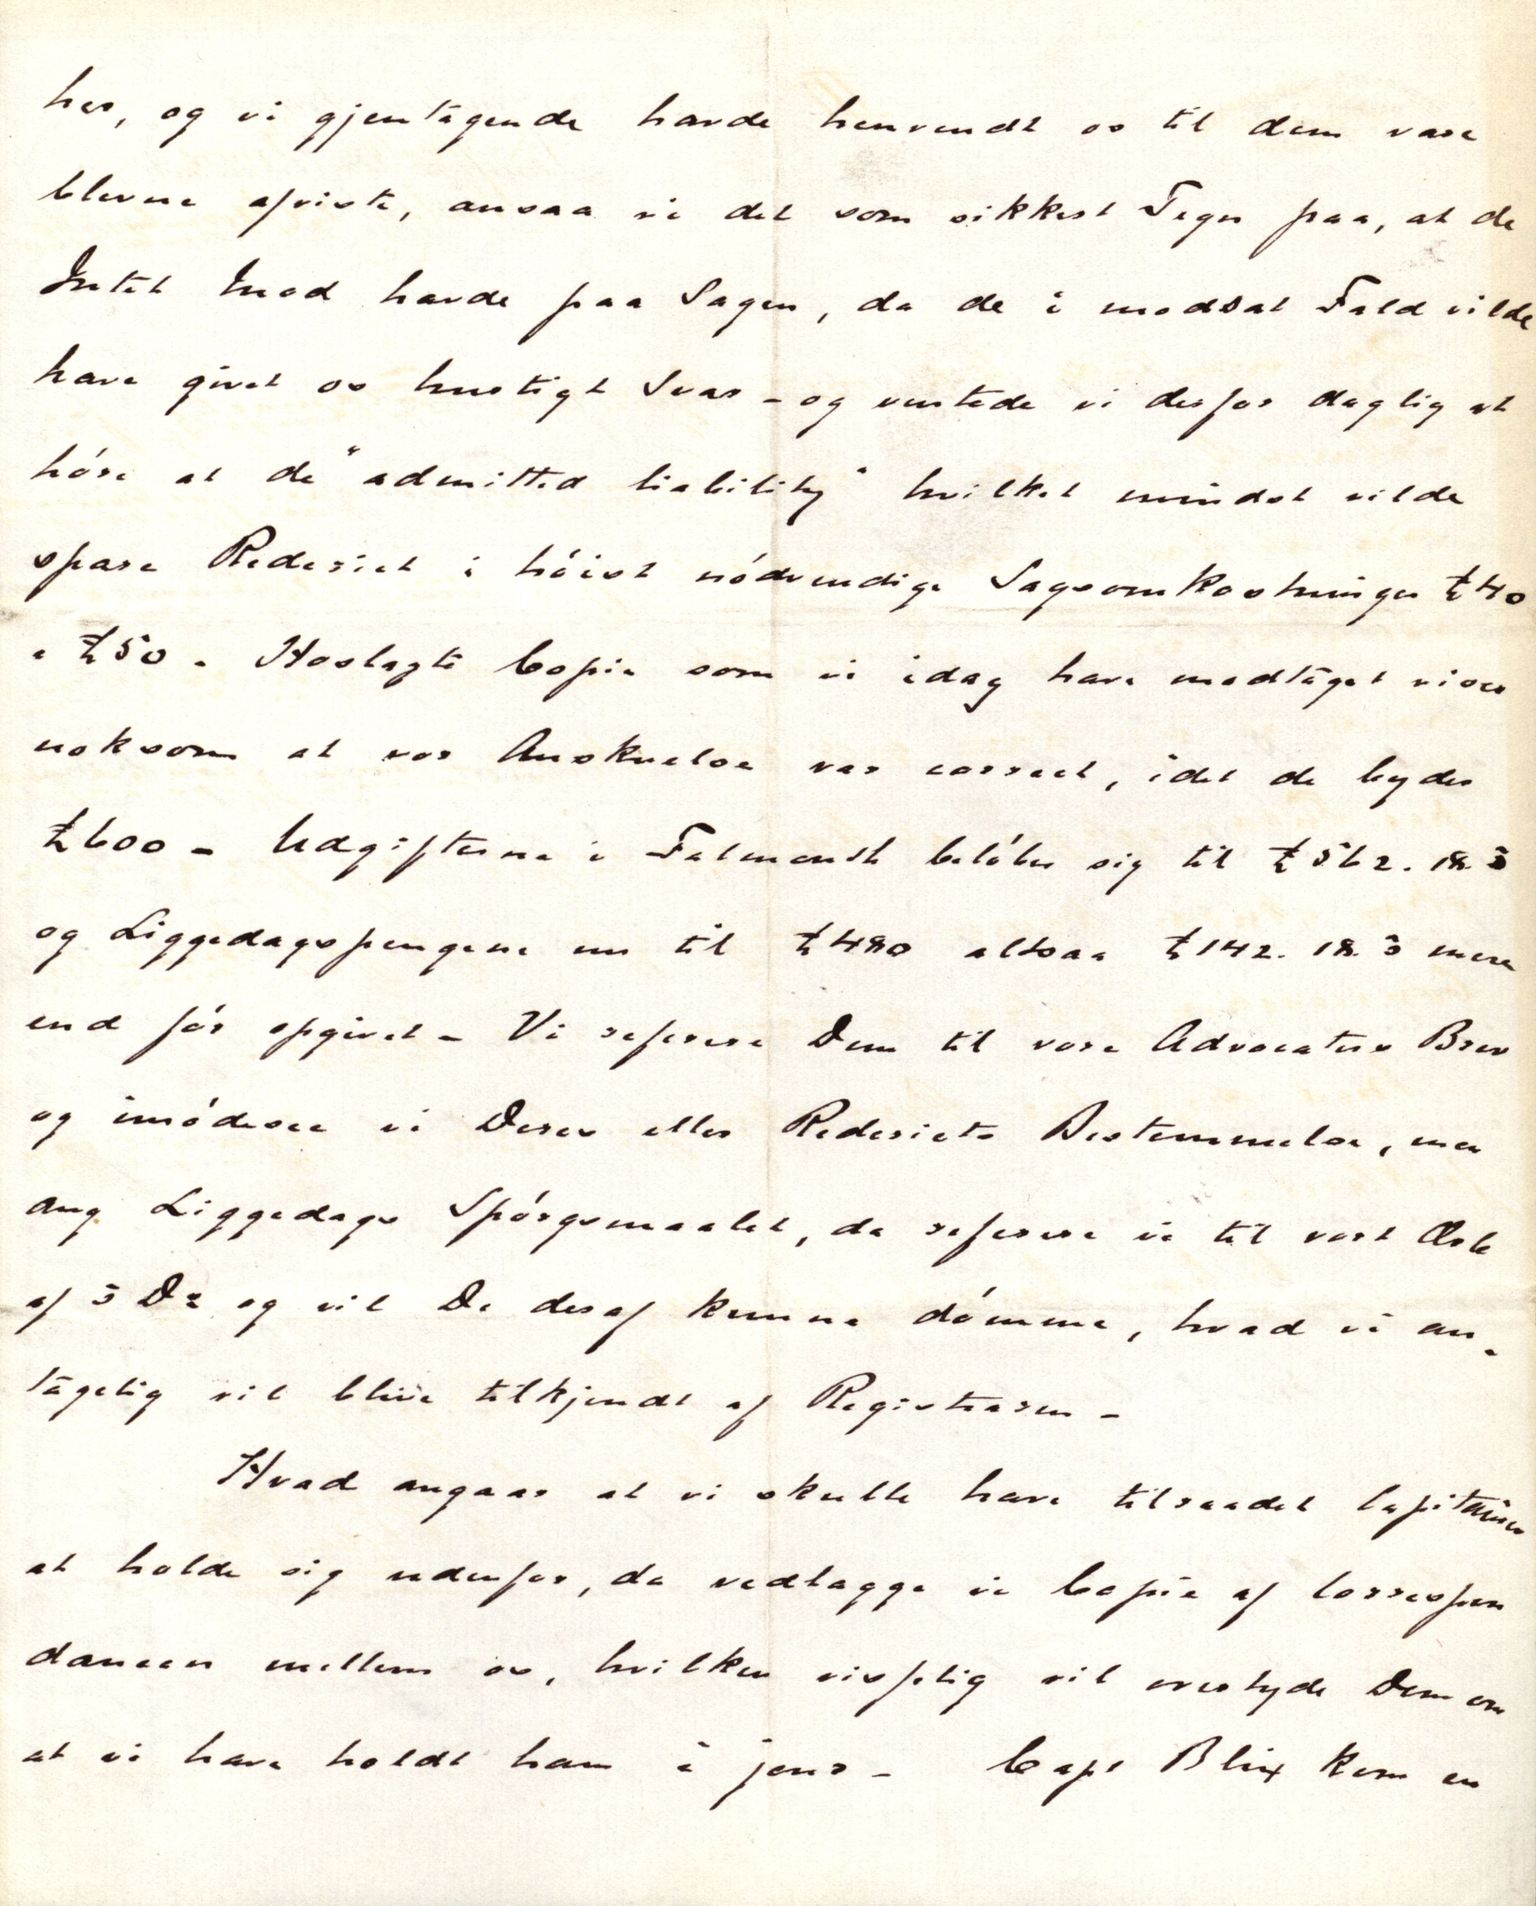 her, og vi gjentagende havde henvendt os til dem vare
blevne afviste, ansaa vi det som sikkert Tegn paa, at de
Intet Mod havde paa Sagen, da de i modsat Fald vilde
have givet os hurtigt Svar – og ventede vi derfor daglig at
höre at de "admitted liability" hvilket mindst vilde
spare Rederiet i höist nödvendige Sagsomkostninger £40
a £50. Hoslagte Copie som vi idag have modtaget viser
noksom at vor Anskuelse var correct, idet de byder
£600 – Udgifterne i Falmouth belöber sig til £562. 18. 3
og Liggedagspengene nu til £480 altsaa £142. 18. 3 mere
end för opgivet – Vi referere Dem til vore Advocaters Brev
og imödesee vi Deres eller Rederiets Bestemmelse, men
ang Liggedags Spörgsmaalet, da referere vi til vort Ærb
af 3 Ds og vil De deraf kunne dömme, hvad vi an-
tagelig vil blive tilkjendt af Registraren –
Hvad angaar at vi skulle have tilraadet Capitainen
at holde sig udenfor, da vedlægge vi Copie af Correspon
dancen mellem os, hvilken visselig vil overtyde Dem om
at vi have holdt ham à jour – Capt Blix kom en